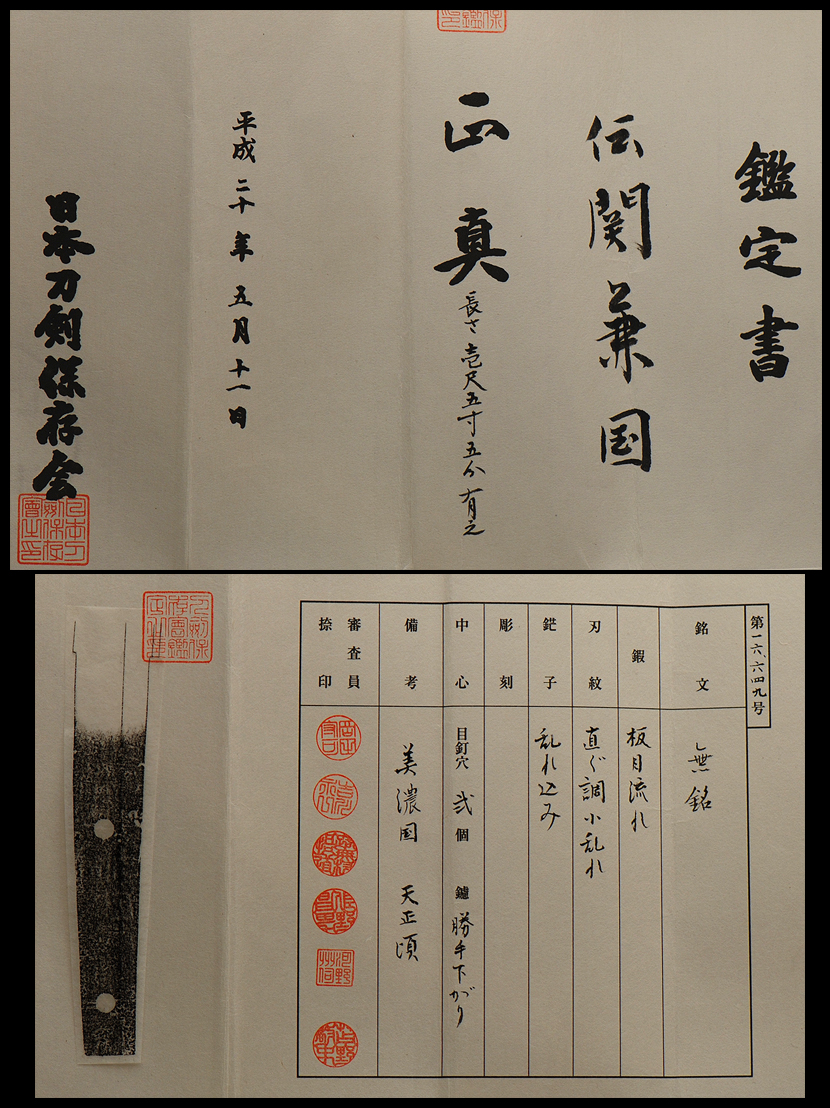 鑑定書
伝関兼国
正真
長さ壱尺五寸五分有之
平成二十年五月十一日
日本刀剣保存会
第一六、六四九号
銘文
無銘
鍜
板目流れ
刃紋
直ぐ調小乱れ
鋩子
乱れ込み
彫刻
中心
目釘穴 弐個 鑢 勝手下がり
備考
美濃国 天正頃
審査員
捺印